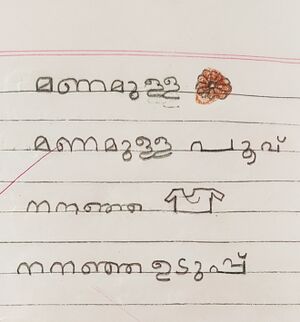 മണമുള്ള
മണമുള്ള പൂവ്
നനഞ്ഞ
നനഞ്ഞ ഉടുപ്പ്